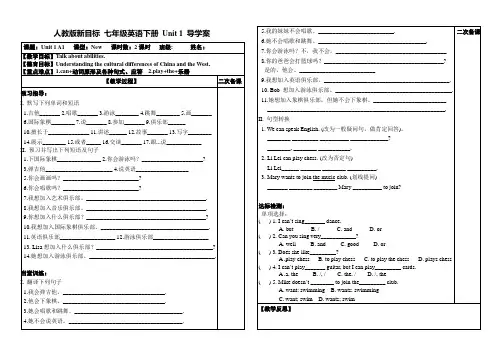 人教版新目标 七年级英语下册 Unit 1 导学案
课题：Unit 1 A1 课型：New 课时数：2 课时 班级: 姓名：
【教学目标】Talk about abilities.
【德育目标】Understanding the cultural differences of China and the West.
【重点难点】1.can+动词原形及各种句式、应答 2.play+the+乐器
【教学过程】 二次备课
预习指导：
I. 默写下列单词和短语
1.吉他______ 2.唱歌______ 3.游泳______ 4.跳舞______ 5.画______
6.国际象棋______ 7.说______ 8.参加______ 9.俱乐部______
10.擅长于______ 11.讲述______ 12.故事______ 13.写字______
14.展示______ 15.或者______ 16.交谈______ 17.跟...说______
II. 预习并写出下列短语及句子
1.下国际象棋______ 2.你会游泳吗？______?
3.弹吉他______ 4.说英语______
5.你会画画吗？______?
6.你会唱歌吗？______?
7.我想加入艺术俱乐部。______.
8.我想加入音乐俱乐部。______.
9.你想加入什么俱乐部？______?
10.我想加入国际象棋俱乐部。______.
11.英语俱乐部______ 12.游泳俱乐部______
13. Lisa 想加入什么俱乐部？______?
14.她想加入游泳俱乐部。______.
I. 翻译下列句子
1.我会弹吉他。______.
2.他会下象棋。______.
3.她会唱歌和跳舞。______.
4.她不会说英语。______.
5.我的妹妹不会唱歌。______.
6.她不会唱歌和跳舞。______.
7.你会游泳吗？不，我不会。______
8.你的爸爸会打篮球吗？______?
是的，他会。______
9.我想加入英语俱乐部。______.
10. Bob 想加入游泳俱乐部。______.
11.她想加入象棋俱乐部，但她不会下象棋。______
______.
II. 句型转换
1. We can speak English. (改为一般疑问句，做肯定回答)。
______ ______ ______ ______?
______, ______ ______.
2. Li Lei can play chess. (改为否定句)
Li Lei ______ ______ ______.
3. Mary wants to join the music club. (划线提问)
______ ______ ______ Mary ______ to join?
达标检测:
单项选择：
( ) 1. I can't sing______ dance.
A. but B. / C. and D. or
( ) 2. Can you sing very______?
A. well B. and C. good D. or
( ) 3. Does she like______?
A. play chess B. to play chess C. to play the chess D. plays chess
( ) 4. I can't play______ guitar, but I can play______ cards.
A. a, the B. /, / C. the, / D. /, the
( ) 5. Mike doesn't ______ to join the______ club.
A. want; swimming B. wants; swimming
C. want; swim D. wants; swim
【教学反思】
二次备课